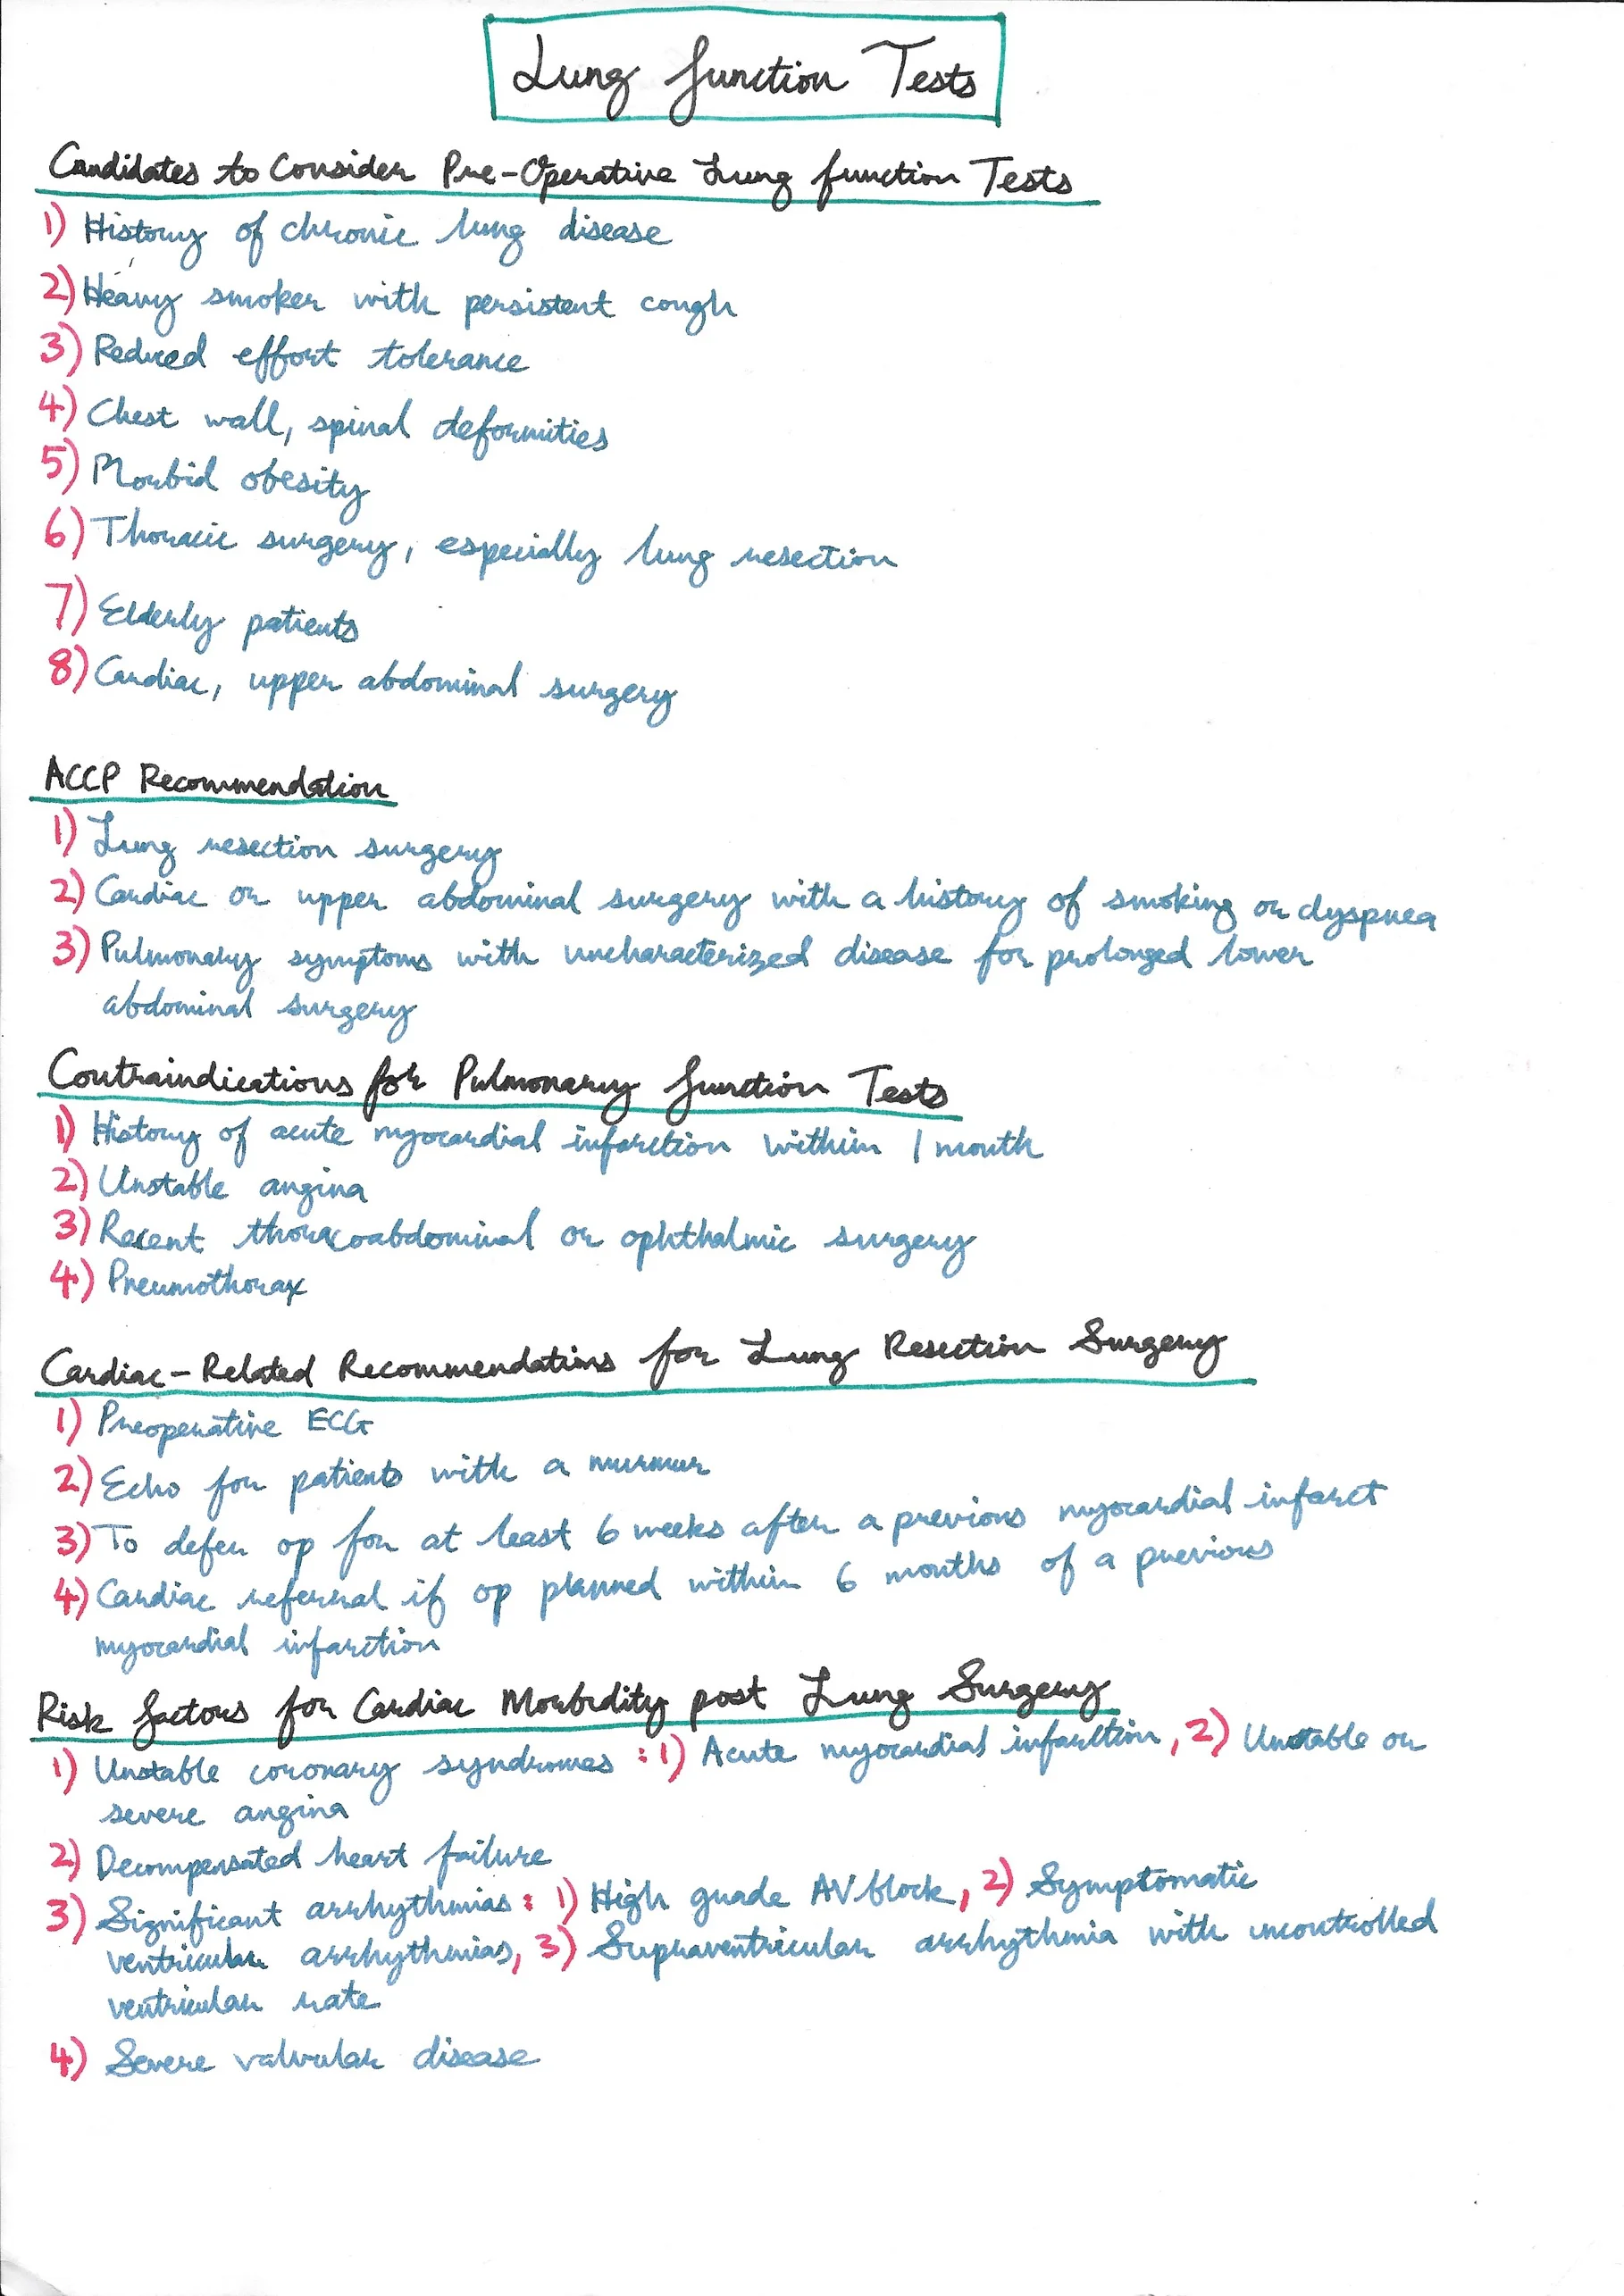 Lung Function Tests
Candidates to Consider Pre-Operative Lung Function Tests
1) History of chronic lung disease
2) Heavy smoker with persistent cough
3) Reduced effort tolerance
4) Chest wall, spinal deformities
5) Morbid obesity
6) Thoracic surgery, especially lung resection
7) Elderly patients
8) Cardiac, upper abdominal surgery
ACCP Recommendation
1) Lung resection surgery
2) Cardiac or upper abdominal surgery with a history of smoking or dyspnea
3) Pulmonary symptoms with uncharacterized disease for prolonged lower
abdominal surgery
Contraindications for Pulmonary Function Tests
1) History of acute myocardial infarction within 1 month
2) Unstable angina
3) Recent thoracoabdominal or ophthalmic surgery
4) Pneumothorax
Cardiac-Related Recommendations for Lung Resection Surgery
1) Preoperative ECG
2) Echo for patients with a murmur
3) To defer op for at least 6 weeks after a previous myocardial infarct
4) Cardiac referral if op planned within 6 months of a previous
myocardial infarction
Risk Factors for Cardiac Morbidity post Lung Surgery
1) Unstable coronary syndromes : 1) Acute myocardial infarction, 2) Unstable or
severe angina
2) Decompensated heart failure
3) Significant arrhythmias : 1) High grade AV block, 2) Symptomatic
ventricular arrhythmias, 3) Supraventricular arrhythmia with uncontrolled
ventricular rate
4) Severe valvular disease